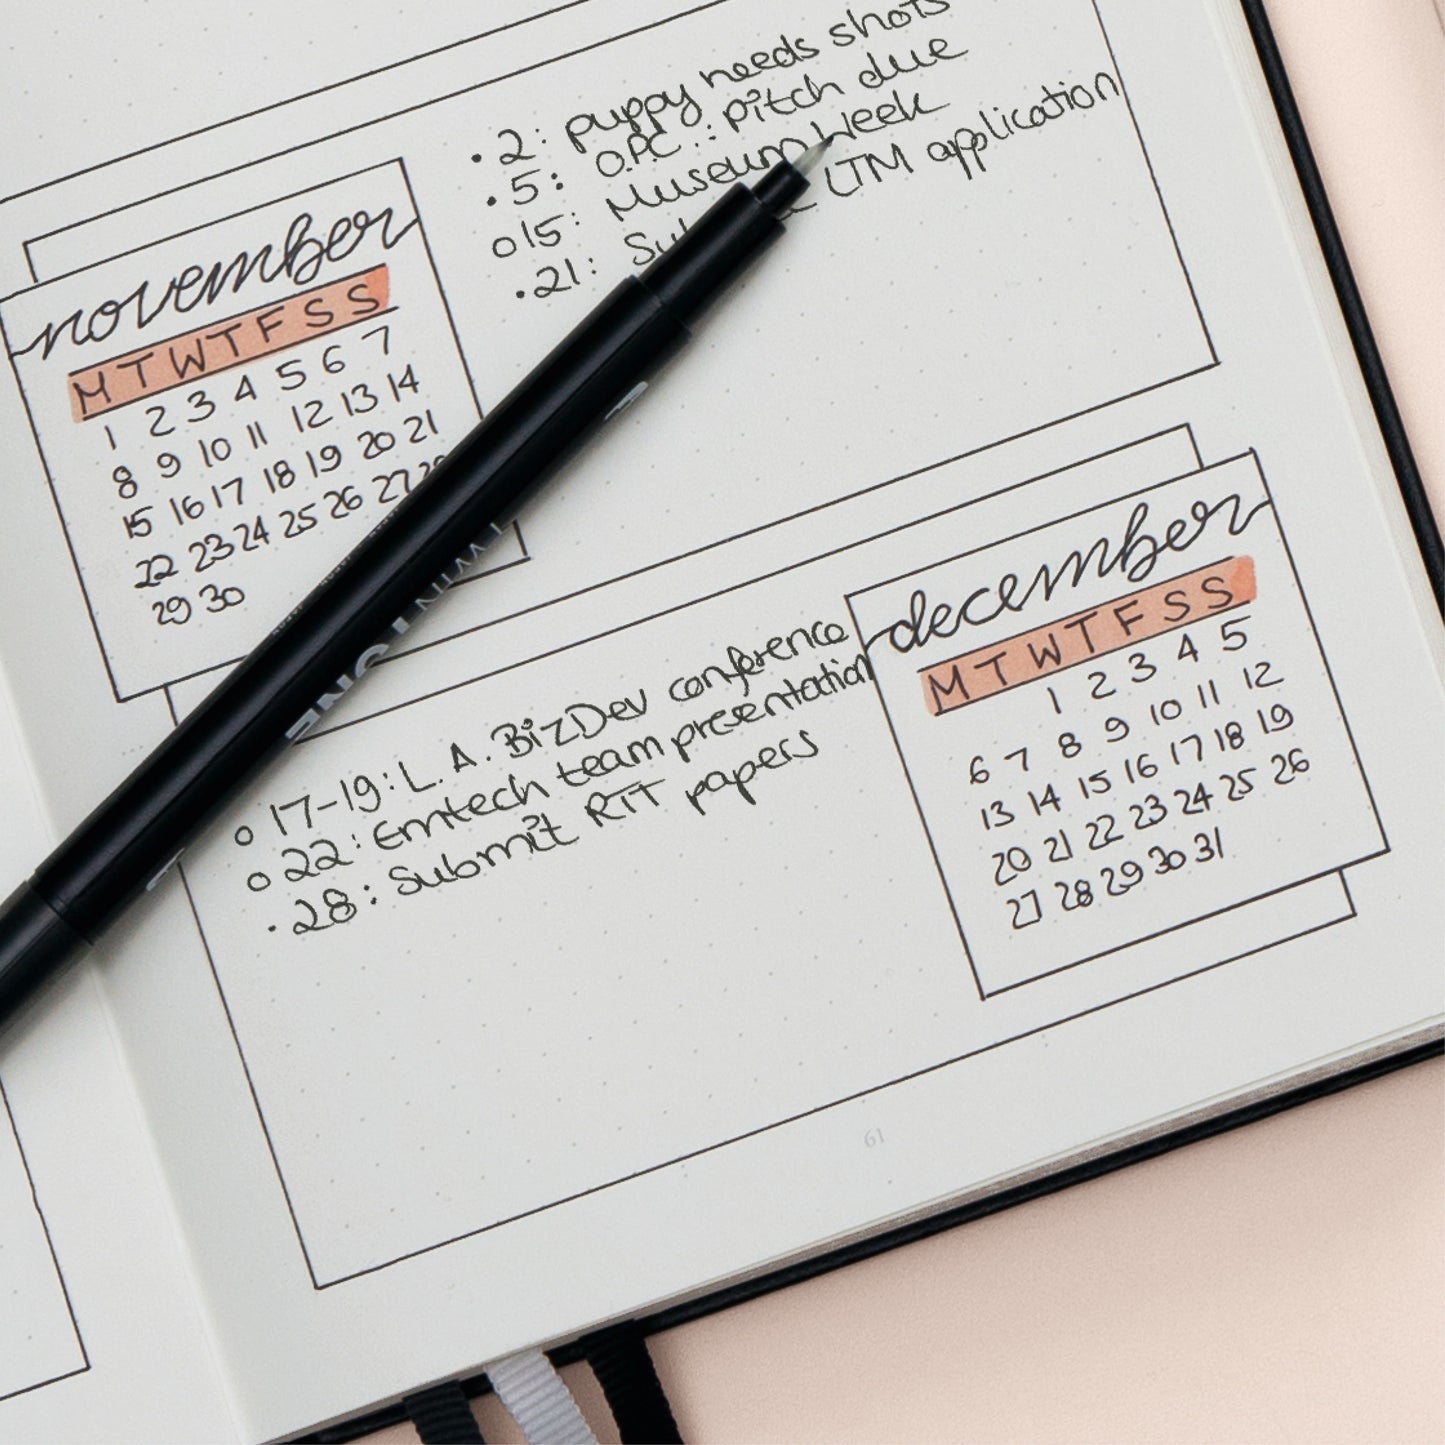 · 2: puppy needs shots
· 5: O.P.C.: pitch due
o 15: Museum Week
· 21: LTM application
november
M T W T F S S
1 2 3 4 5 6 7
8 9 10 11 12 13 14
15 16 17 18 19 20 21
22 23 24 25 26 27 28
29 30
december
M T W T F S S
1 2 3 4 5
6 7 8 9 10 11 12
13 14 15 16 17 18 19
20 21 22 23 24 25 26
27 28 29 30 31
o 17-19: L.A. BizDev conference
o 22: Emtech team presentation
· 28: Submit RTT papers
61